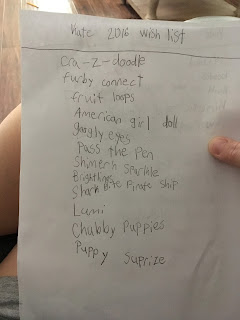 Kate 2016 wish list
Cra-Z-doodle
furby connect
fruit loops
American girl doll
googly eyes
Pass the Pen
Shimerh Sparkle
Brightlings
Shark Bite Pirate Ship
Lumi
Chubby Puppies
Puppy Suprize